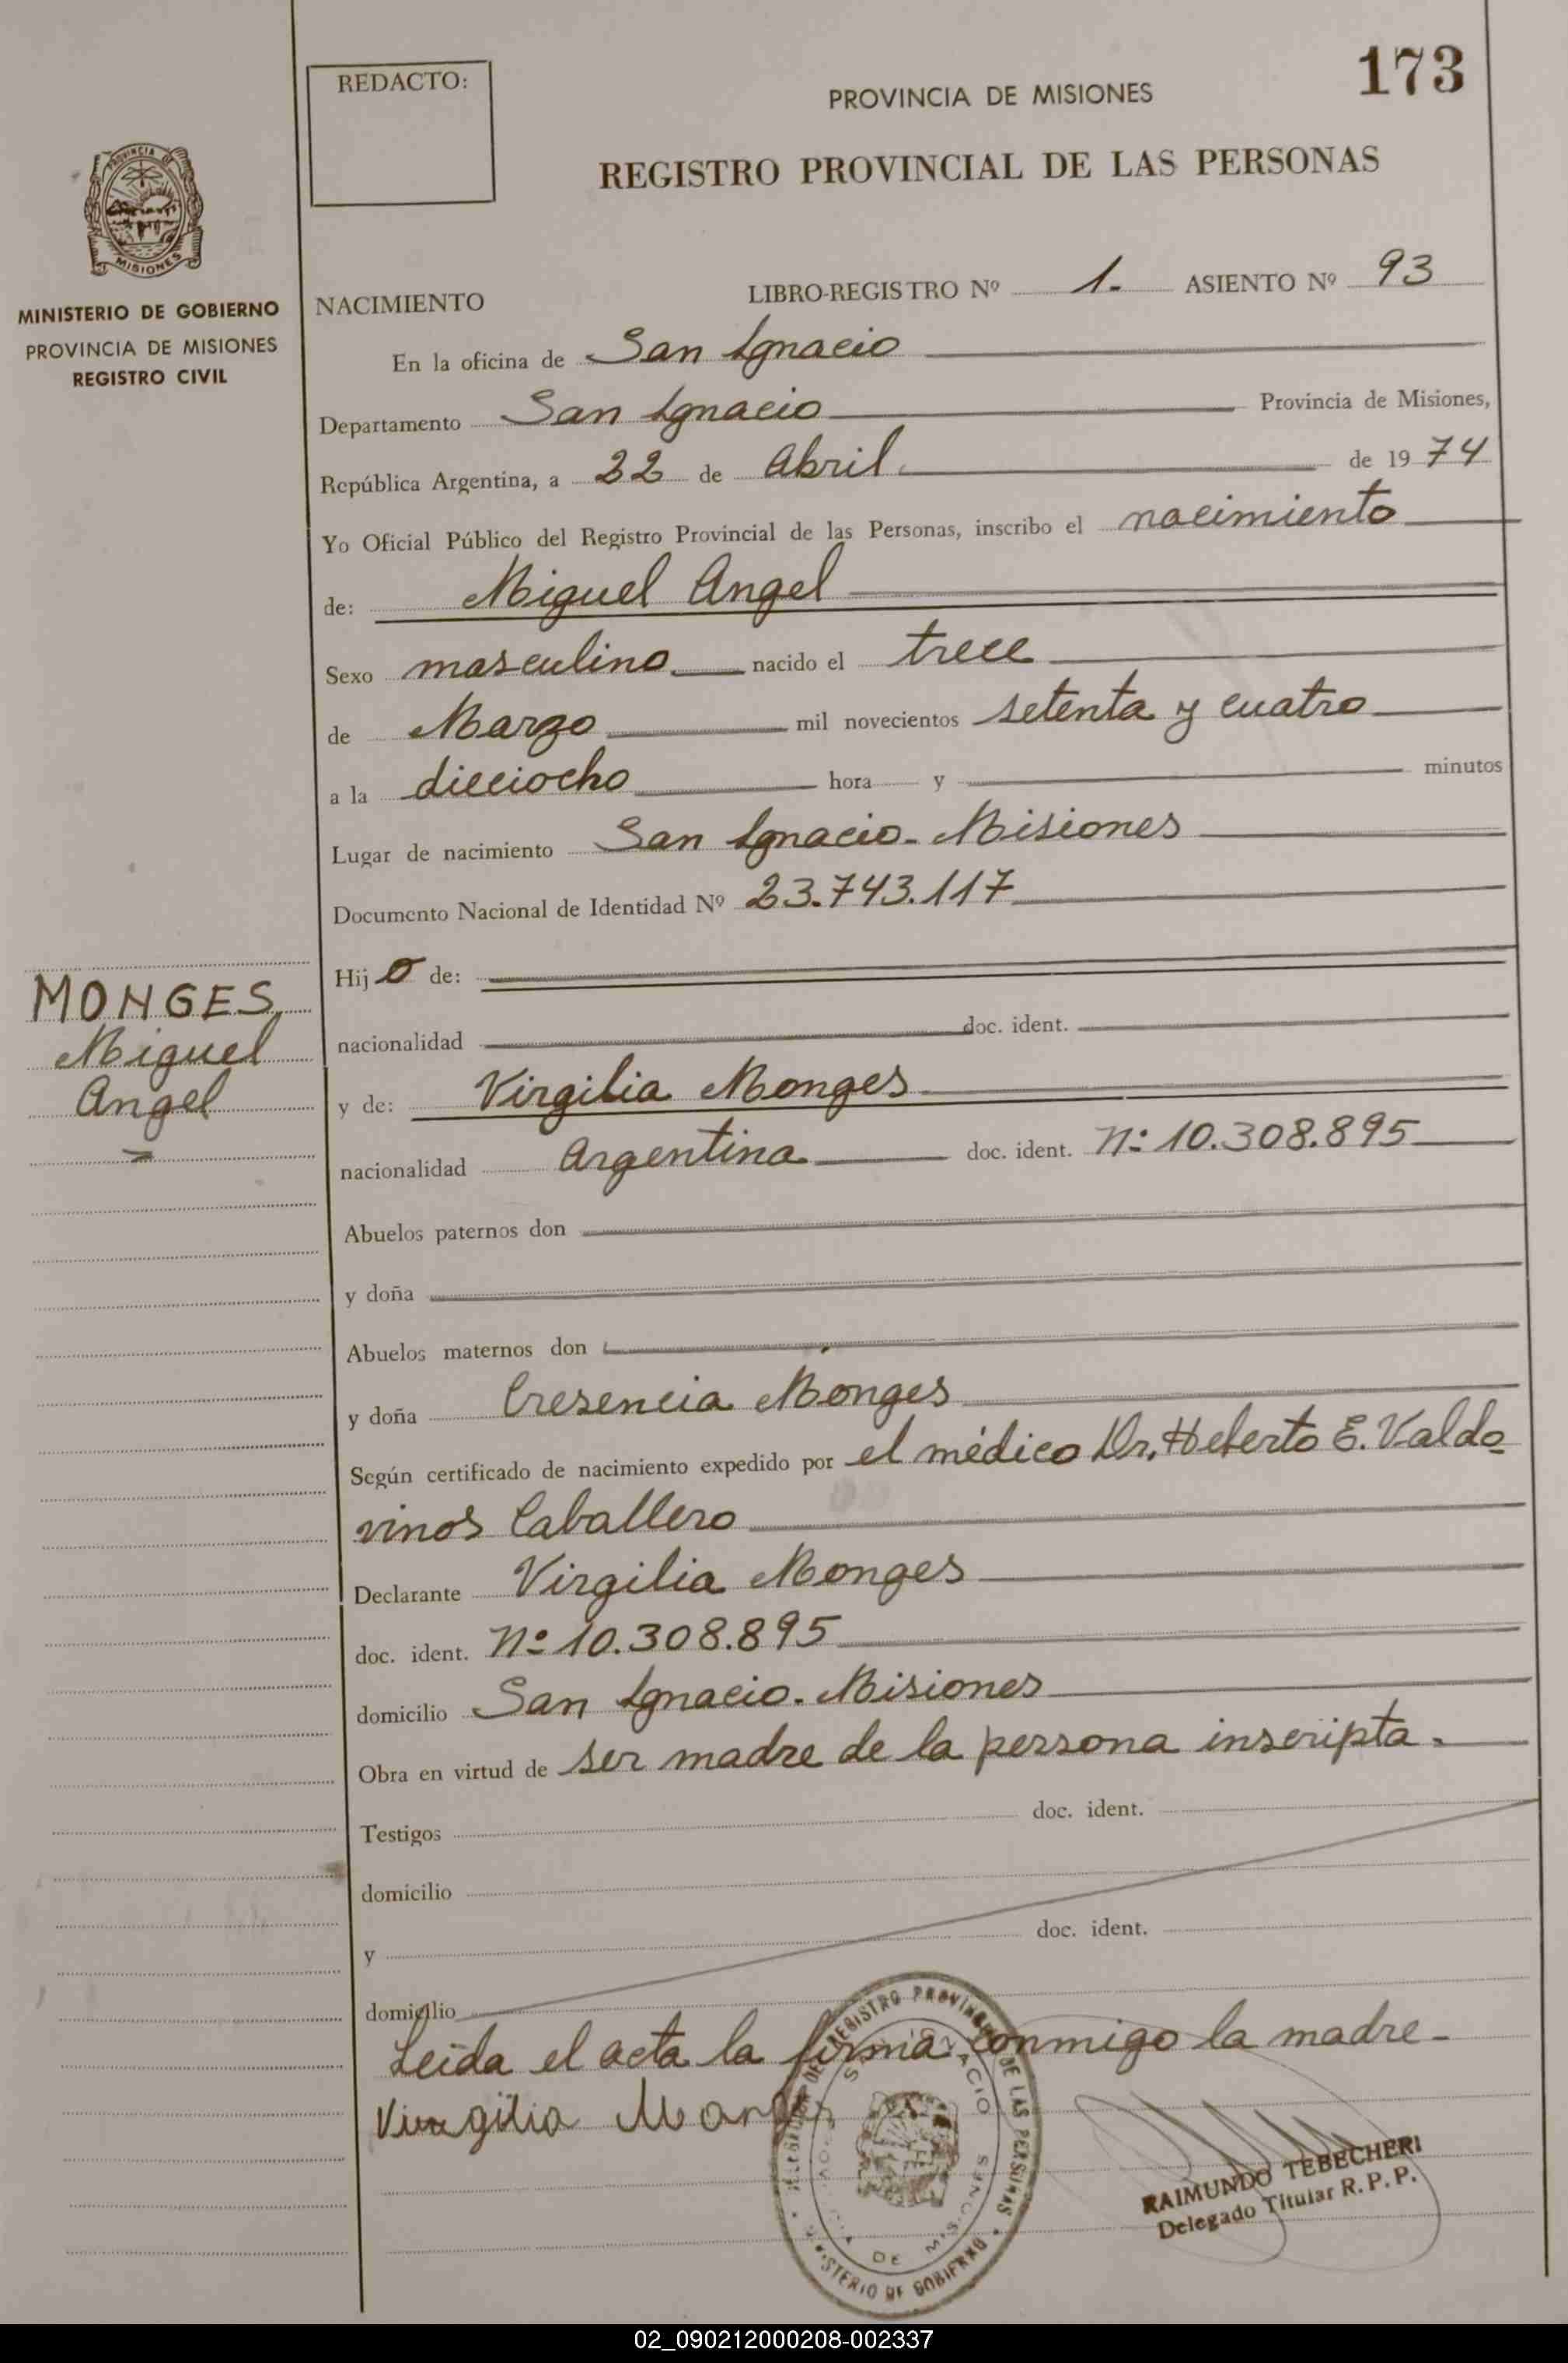 173
REDACTO:
PROVINCIA DE MISIONES
REGISTRO PROVINCIAL DE LAS PERSONAS
PROVINCIA DE
MISIONES
MINISTERIO DE GOBIERNO
PROVINCIA DE MISIONES
REGISTRO CIVIL
NACIMIENTO LIBRO-REGISTRO Nº 1. ASIENTO Nº 93
En la oficina de San Ignacio
Departamento San Ignacio Provincia de Misiones,
República Argentina, a 22 de Abril de 1974
Yo Oficial Público del Registro Provincial de las Personas, inscribo el nacimiento
de: Miguel Angel
Sexo masculino nacido el trece
de Marzo mil novecientos setenta y cuatro
a la dieciocho hora y minutos
Lugar de nacimiento San Ignacio - Misiones
Documento Nacional de Identidad Nº 23.743.117
Hijo de:
nacionalidad doc. ident.
MONGES,
Miguel
Angel
y de: Virgilia Monges
nacionalidad Argentina doc. ident. Nº 10.308.895
Abuelos paternos don
y doña
Abuelos maternos don
y doña Cresencia Monges
Según certificado de nacimiento expedido por el médico Dr. Heberto E. Valdo
vinos Caballero
Declarante Virgilia Monges
doc. ident. Nº 10.308.895
domicilio San Ignacio. Misiones
Obra en virtud de ser madre de la persona inscripta.
Testigos doc. ident.
domicilio
y doc. ident.
domicilio
Leída el acta la firma conmigo la madre-
Virgilia Monges
REGISTRO PROVINCIAL DE LAS PERSONAS
MINISTERIO DE GOBIERNO
DE MISIONES
RAIMUNDO TEBECHERI
Delegado Titular R. P. P.
02_090212000208-002337